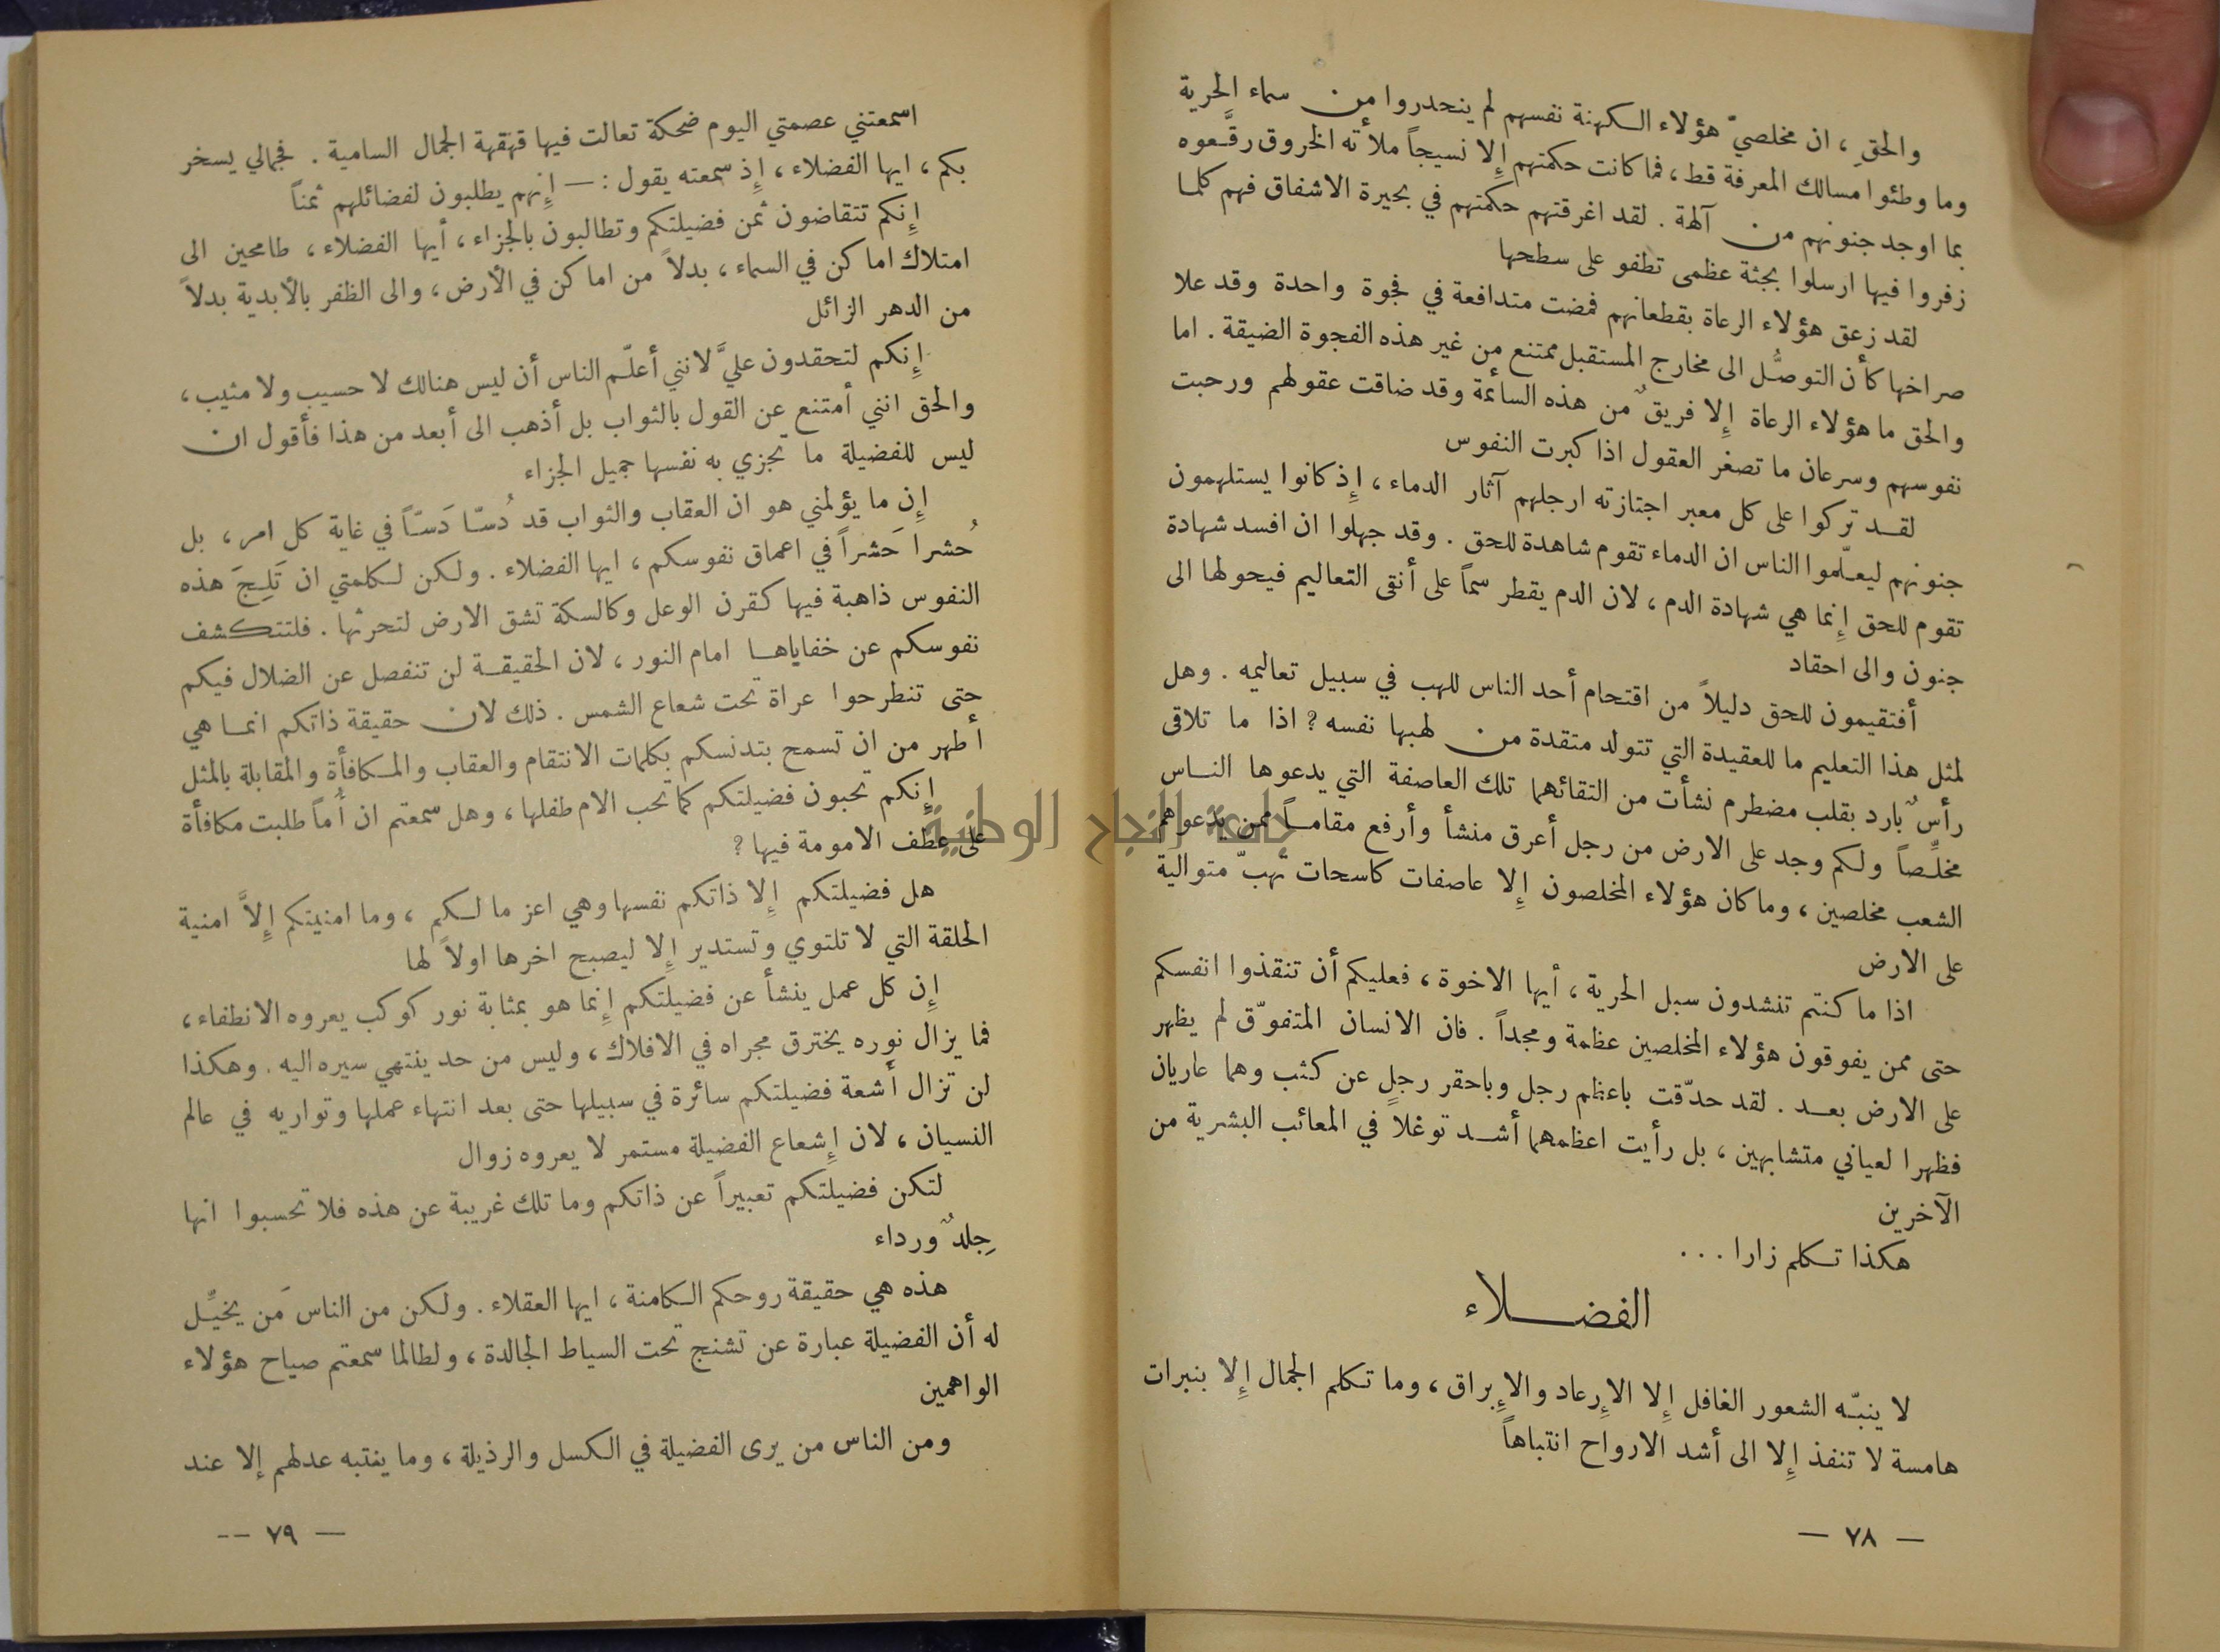 والحقِ ، ان مخلصيّ هؤلاء الكهنة نفسهم لم ينحدروا من سماء الحرية
وما وطئوا مسالك المعرفة قط ، فما كانت حكمتهم إِلا نسيجاً ملأته الخروق رقَّعوه
بما اوجد جنونهم من آلهة . لقد اغرقتهم حكمتهم في بحيرة الاشفاق فهم كلما
زفروا فيها ارسلوا بجثة عظمى تطفو على سطحها
لقد زعق هؤلاء الرعاة بقطعانهم فمضت متدافعة في فجوة واحدة وقد علا
صراخها كأن التوصُّل الى مخارج المستقبل ممتنع من غير هذه الفجوة الضيقة . اما
والحق ما هؤلاء الرعاة إِلا فريقٌ من هذه السائمة وقد ضاقت عقولهم ورحبت
نفوسهم وسرعان ما تصغر العقول اذا كبرت النفوس
لقد تركوا على كل معبر اجتازته ارجلهم آثار الدماء ، إِذ كانوا يستلهمون
جنونهم ليعلّموا الناس ان الدماء تقوم شاهدة للحق . وقد جهلوا ان افسد شهادة
تقوم للحق إِنما هي شهادة الدم ، لان الدم يقطر سماً على أنقى التعاليم فيحولها الى
جنون والى احقاد
أفتقيمون للحق دليلاً من اقتحام أحد الناس للهب في سبيل تعاليمه . وهل
لمثل هذا التعليم ما للعقيدة التي تتولد متقدة من لهبها نفسه ؟ اذا ما تلاقى
رأسٌ بارد بقلب مضطرم نشأت من التقائهما تلك العاصفة التي يدعوها الناس
مخلِّصاً ولكم وجد على الارض من رجل أعرق منشأ وأرفع مقاماً ممن يدعوهم
الشعب مخلصين ، وما كان هؤلاء المخلصون إِلا عاصفات كاسحات تهبّ متوالية
على الارض
اذا ما كنتم تنشدون سبل الحرية ، أيها الاخوة ، فعليكم أن تنقذوا انفسكم
حتى ممن يفوقون هؤلاء المخلصين عظمة ومجداً . فان الانسان المتفوّق لم يظهر
على الارض بعد . لقد حدّقت باعظم رجل وباحقر رجلٍ عن كثب وهما عاريان
فظهرا لعياني متشابهين ، بل رأيت اعظمهما أشد توغلاً في المعائب البشرية من
الآخرين
هكذا تكلم زارا . . .
الفضلاء
لا ينبّه الشعور الغافل إِلا الإِرعاد والإِبراق ، وما تكلم الجمال إِلا بنبرات
هامسة لا تنفذ إِلا الى أشد الارواح انتباهاً
— ٧٨ —
اسمعتني عصمتي اليوم ضحكة تعالت فيها قهقهة الجمال السامية . فجمالي يسخر
بكم ، ايها الفضلاء ، إِذ سمعته يقول : — إِنهم يطلبون لفضائلهم ثمناً
إِنكم تتقاضون ثمن فضيلتكم وتطالبون بالجزاء ، أيها الفضلاء ، طامحين الى
امتلاك اماكن في السماء ، بدلاً من اماكن في الأرض ، والى الظفر بالأبدية بدلاً
من الدهر الزائل
إِنكم لتحقدون عليَّ لانني أعلّم الناس أن ليس هنالك لا حسيب ولا مثيب ،
والحق انني أمتنع عن القول بالثواب بل أذهب الى أبعد من هذا فأقول ان
ليس للفضيلة ما تجزي به نفسها جميل الجزاء
إِن ما يؤلمني هو ان العقاب والثواب قد دُسّا دَسّاً في غاية كل امر ، بل
حُشرا حَشراً في اعماق نفوسكم ، ايها الفضلاء . ولكن لكلمتي ان تَلِجَ هذه
النفوس ذاهبة فيها كقرن الوعل وكالسكة تشق الارض لتحرثها . فلتتكشف
نفوسكم عن خفاياها امام النور ، لان الحقيقة لن تنفصل عن الضلال فيكم
حتى تنطرحوا عراة تحت شعاع الشمس . ذلك لان حقيقة ذاتكم انما هي
أطهر من ان تسمح بتدنسكم بكلمات الانتقام والعقاب والمكافأة والمقابلة بالمثل
إِنكم تحبون فضيلتكم كما تحب الام طفلها ، وهل سمعتم ان أُماً طلبت مكافأة
على عطف الامومة فيها ؟
هل فضيلتكم إِلا ذاتكم نفسها وهي اعز ما لكم ، وما امنيتكم إِلاَّ امنية
الحلقة التي لا تلتوي وتستدير إِلا ليصبح اخرها اولاً لها
إِن كل عمل ينشأ عن فضيلتكم إِنما هو بمثابة نور كوكب يعروه الانطفاء ،
فما يزال نوره يخترق مجراه في الافلاك ، وليس من حد ينتهي سيره اليه . وهكذا
لن تزال أشعة فضيلتكم سائرة في سبيلها حتى بعد انتهاء عملها وتواريه في عالم
النسيان ، لان إِشعاع الفضيلة مستمر لا يعروه زوال
لتكن فضيلتكم تعبيراً عن ذاتكم وما تلك غريبة عن هذه فلا تحسبوا انها
جِلدٌ ورداء
هذه هي حقيقة روحكم الكامنة ، ايها العقلاء . ولكن من الناس مَن يخيِّل
له أن الفضيلة عبارة عن تشنج تحت السياط الجالدة ، ولطالما سمعتم صياح هؤلاء
الواهمين
ومن الناس من يرى الفضيلة في الكسل والرذيلة ، وما ينتبه عدلهم إلا عند
— ٧٩ --
جامعة النجاح الوطنية